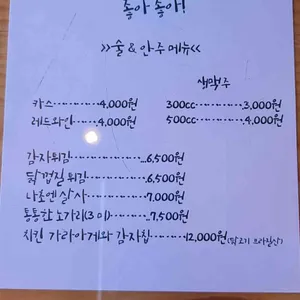 좋아 좋아!
>>술 & 안주 메뉴<<
생맥주
카스 4,000원 300cc 3,000원
레드와인 4,000원 500cc 4,000원
감자튀김 6,500원
닭껍질튀김 6,500원
나초엔 살사 7,000원
통통한 노가리(3미) 7,500원
치킨 가라아게와 감자칩 12,000원 (닭고기 브라질산)